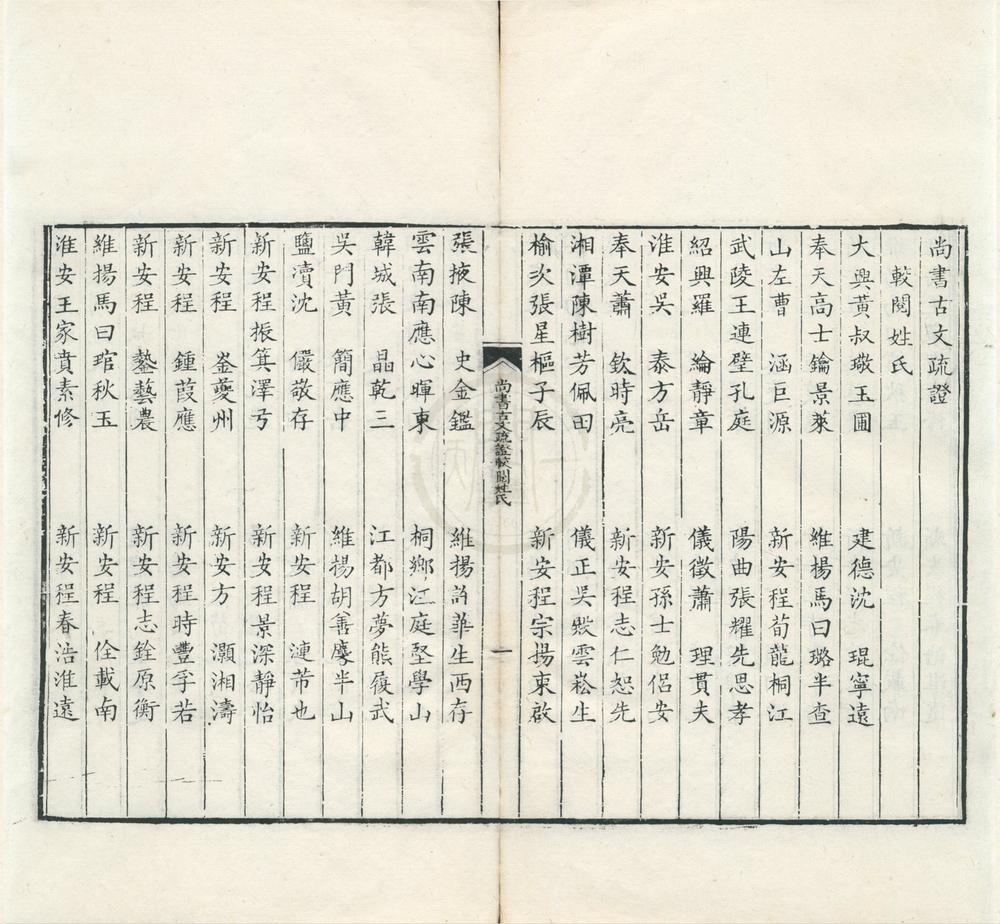 尚書古文疏證
較閱姓氏
大興黃叔璥玉圃　建德沈　琨寧遠
奉天高士鑰景萊　維揚馬曰璐半查
山左曹　涵巨源　新安程荀龍桐江
武陵王連璧孔庭　陽曲張耀先思孝
紹興羅　綸靜章　儀徵蕭　理貫夫
淮安吳　泰方岳　新安孫士勉侶安
奉天蕭　欽時亮　新安程志仁恕先
湘潭陳樹芳佩田　儀正吳　雲崧生
榆次張星樞子辰　新安程宗揚東啟
尚書古文疏證較閱姓氏　一
張掖陳　史金鑑　維揚許華生西存
雲南南應心暉東　桐鄉江庭堅學山
韓城張　晶乾三　江都方夢熊履武
吳門黃　簡應中　維揚胡善麐半山
鹽瀆沈　儼敬存　新安程　漣芾也
新安程振箕澤弓　新安程景深靜怡
新安程　崟夔州　新安方　灝湘濤
新安程　鍾葭應　新安程時豐孚若
新安程　鍪藝農　新安程志銓原衡
維揚馬曰琯秋玉　新安程　佺載南
淮安王家賁素修　新安程春浩淮遠